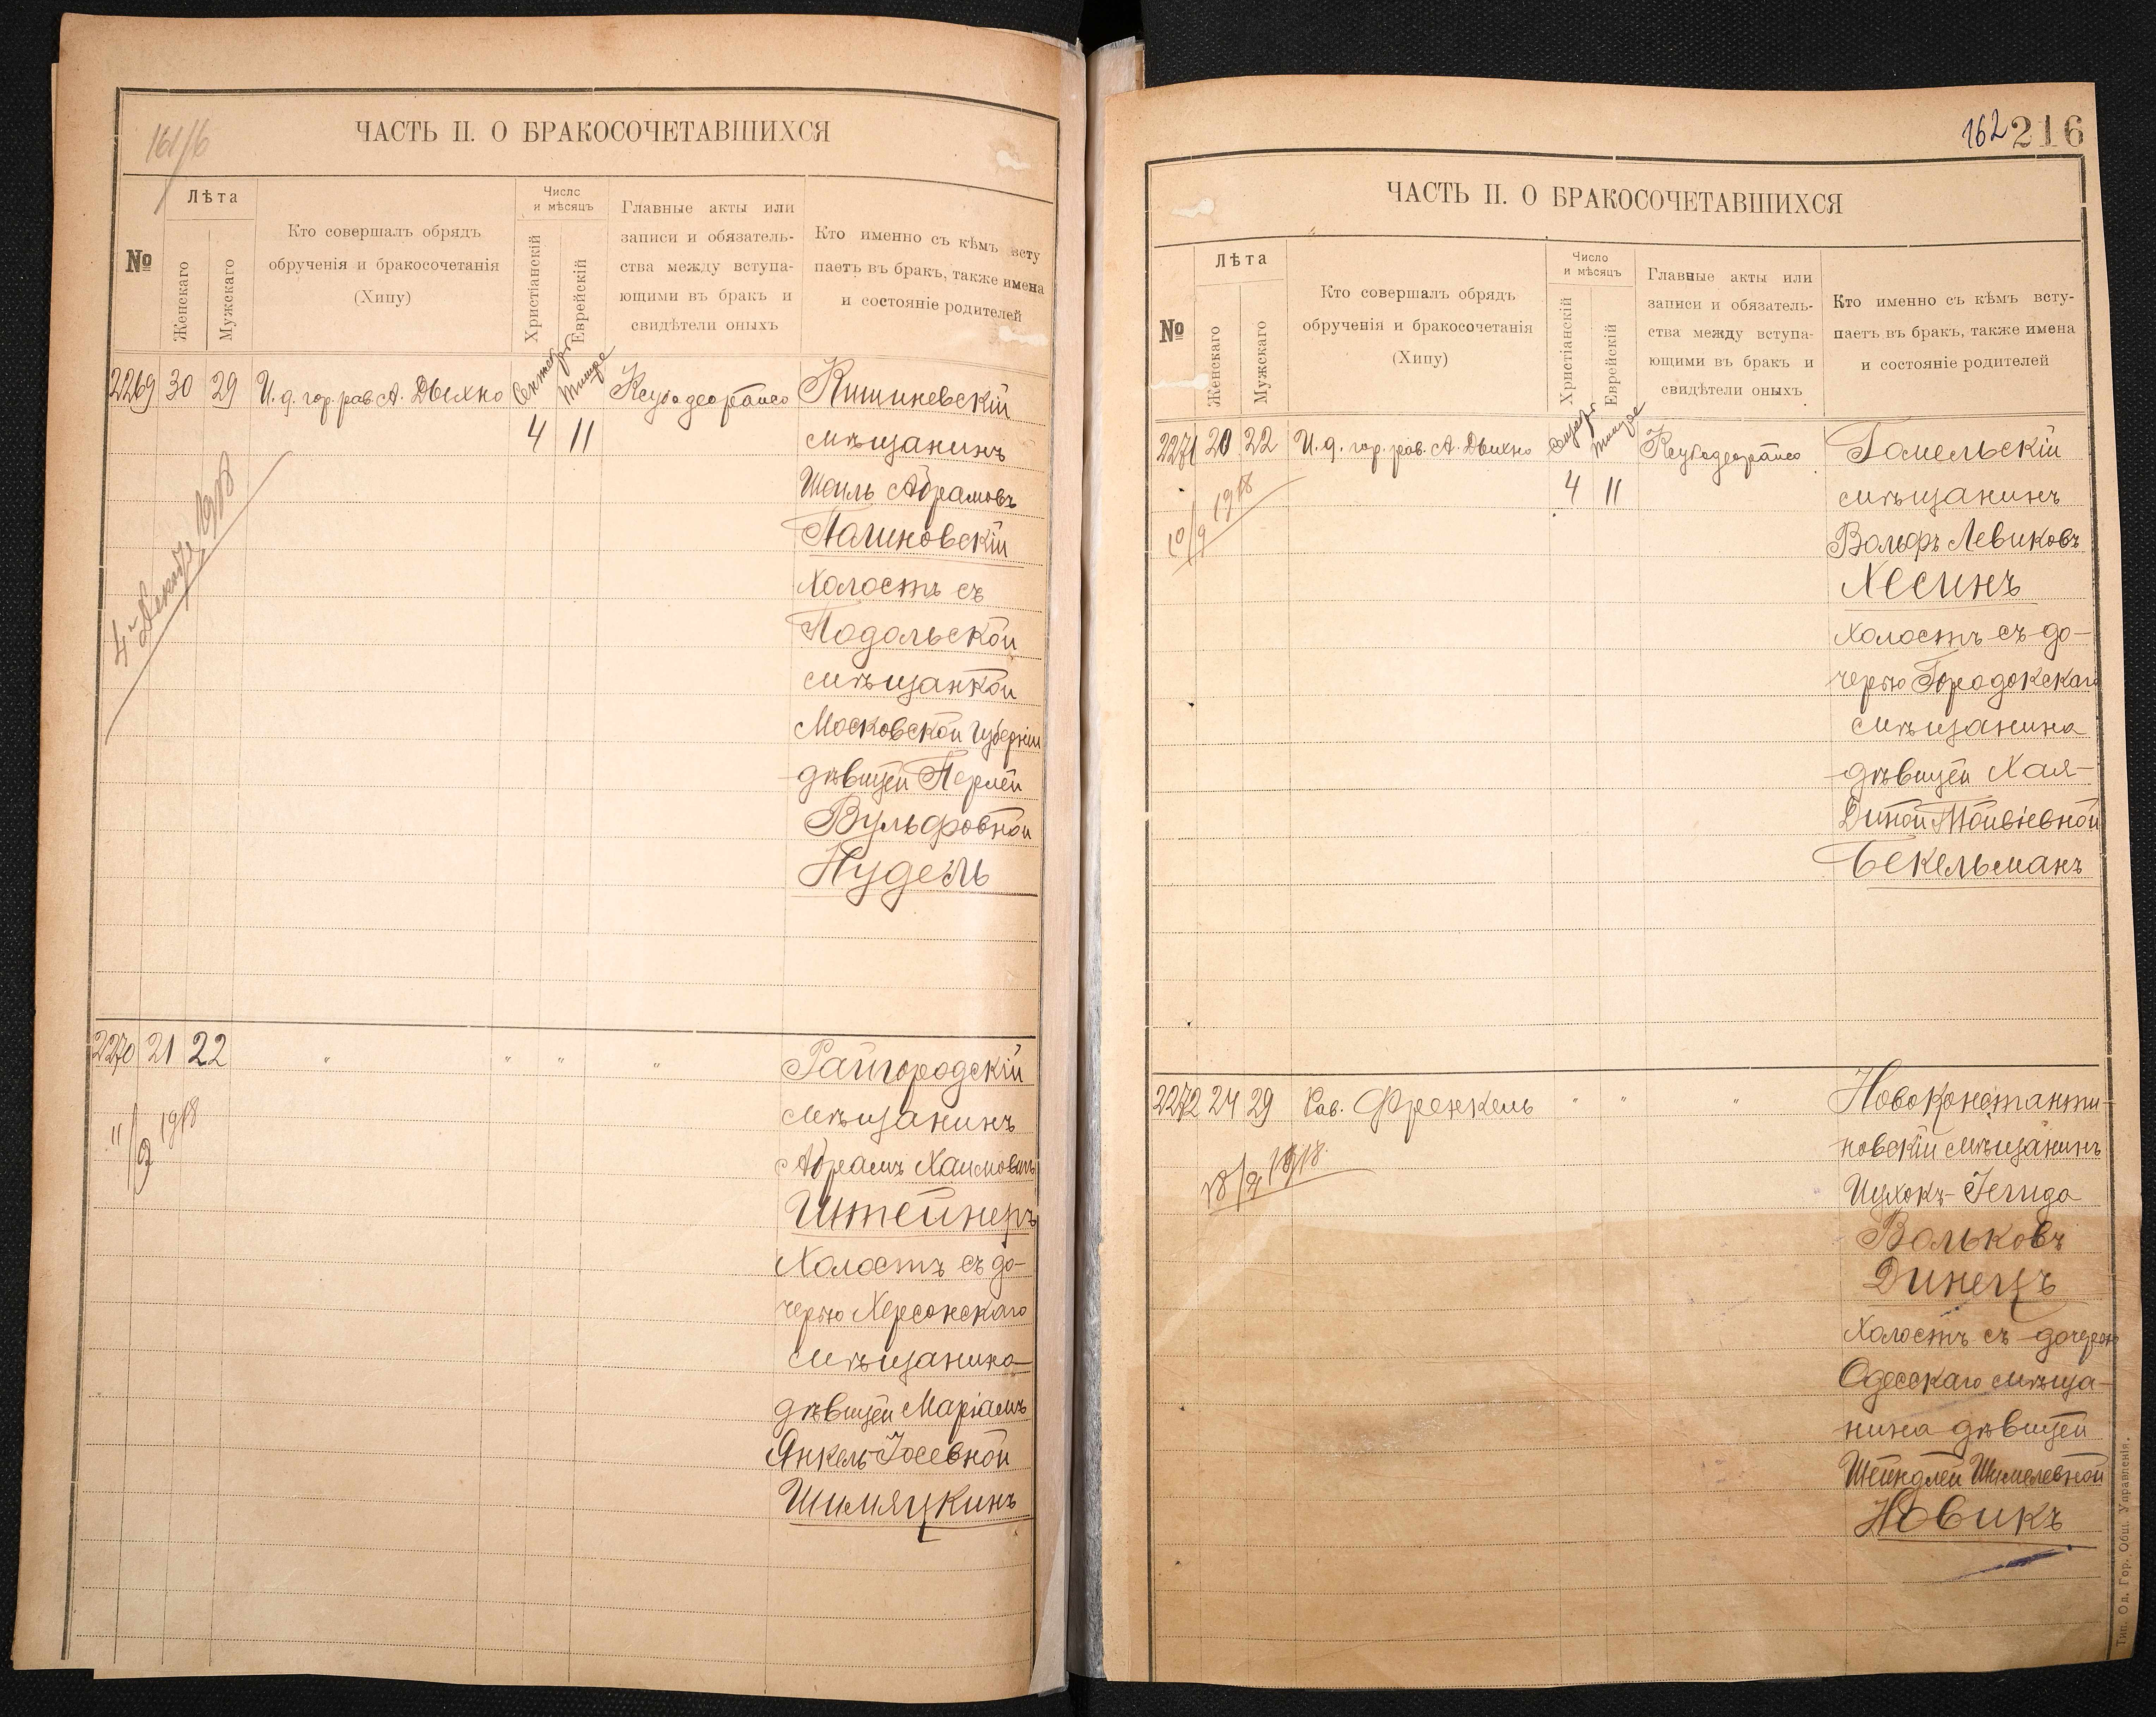 161/16
ЧАСТЬ II. О БРАКОСОЧЕТАВШИХСЯ
№
Лѣта
Женскаго
Мужскаго
Кто совершалъ обрядъ
обрученія и бракосочетанія
(Хипу)
Число
и мѣсяцъ
Христіанскій
Еврейскій
Главные акты или
записи и обязатель-
ства между вступа-
ющими въ бракъ и
свидѣтели оныхъ
Кто именно съ кѣмъ всту
паетъ въ бракъ, также имена
и состояніе родителей
2269 30 29 И. д. гор. рав. А. Дыхно Сентябр Тишре Ксубо деорайсо Кишиневскій
4 11 мѣщанинъ
Шоиль Абрамовъ
Палиновскій
холостъ съ
Подольской
мѣщанкой
Московской Губерніи
дѣвицей Перлей
Вульфовной
Нудель
1918
2270 21 22 " " " " Райгородскій
11/9 1918 мѣщанинъ
Абрамъ Хаимовичъ
Штейнеръ
Холостъ съ до-
черью Херсонскаго
мѣщанина
дѣвицей Маріамъ
Янкель-Іосевной
Шимяцкинъ
162 216
ЧАСТЬ II. О БРАКОСОЧЕТАВШИХСЯ
№
Лѣта
Женскаго
Мужскаго
Кто совершалъ обрядъ
обрученія и бракосочетанія
(Хипу)
Число
и мѣсяцъ
Христіанскій
Еврейскій
Главные акты или
записи и обязатель-
ства между вступа-
ющими въ бракъ и
свидѣтели оныхъ
Кто именно съ кѣмъ всту-
паетъ въ бракъ, также имена
и состояніе родителей
2271 20 22 И. д. гор. рав. А. Дыхно Тишре Ксубо деорайсо Гомельскій
10/9 1918 4 11 мѣщанинъ
Вольфъ Левиковъ
Хесинъ
холостъ съ до-
черью Городокскаго
мѣщанина
дѣвицей Хая-
Диной Тойвіевной
Бекельманъ
2272 24 29 Рав. Френкель " " " Новоконстанти-
новскій мѣщанинъ
18/9 1918 Ицхокъ-Іегида
Вольковъ
Динецъ
Холостъ съ дочерью
Одесскаго мѣща-
нина дѣвицей
Шейндлей Шмилевной
Новикъ
Тип. Од. Гор. Общ. Управленія.